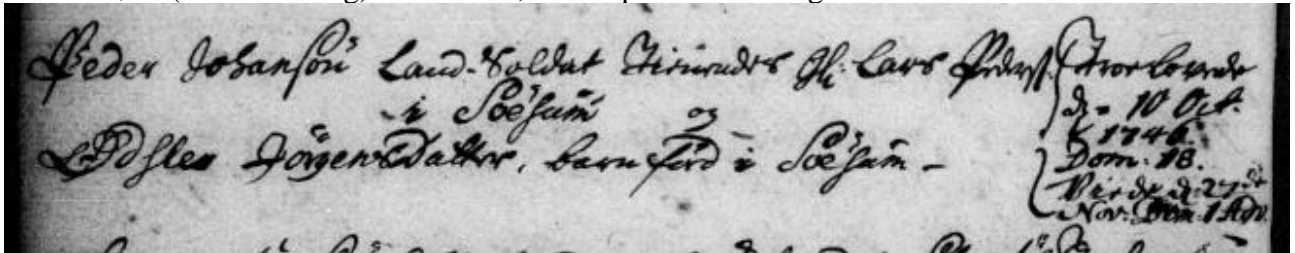 Peder Johansøn Land-Soldat tienendes hos Lars Peders.
i Søesum
og
Sidsler Jörgens Datter, barnfød i Søesum –
Troelovede
d. 10 Oct.
1746.
Dom. 18.
Viede d. 27de
Nov. Dom. 1 Adv.